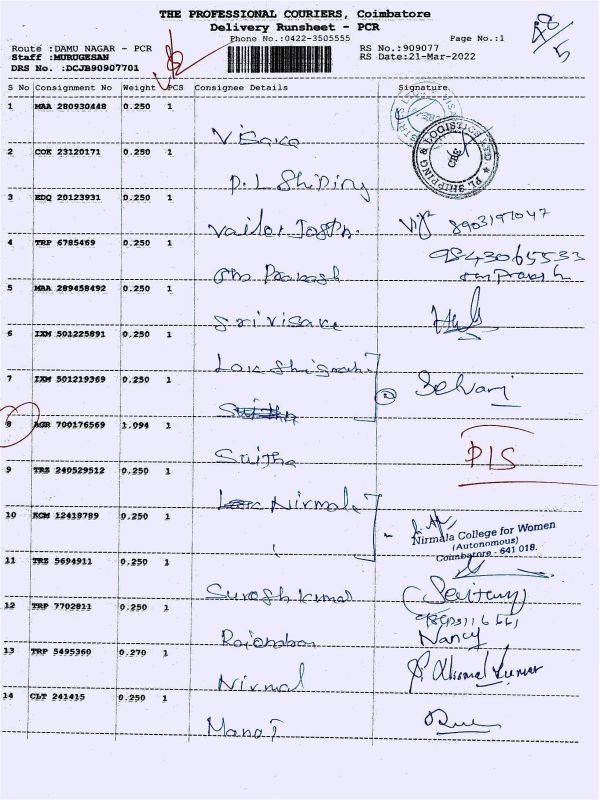 THE PROFESSIONAL COURIERS, Coimbatore
Delivery Runsheet - PCR
Phone No.:0422-3505555 Page No.:1
Route :DAMU NAGAR - PCR RS No.:909077
Staff :MURUGESAN RS Date:21-Mar-2022
DRS No. :DCJB90907701
S No Consignment No Weight PCS Consignee Details Signature
1 MAA 280930448 0.250 1
Visaka
2 COK 23120171 0.250 1
P.L Shiping
PL SHIPPING & LOGISTICS
CBE
3 EDQ 20123931 0.250 1
8903197047
4 TRP 6785469 0.250 1
9843065533
Prakash
5 MAA 289458492 0.250 1
Sri Visaka
6 IXM 501225891 0.250 1
7 IXM 501219369 0.250 1
Selvam
8 AGR 700176569 1.094 1
Sujtha
9 TRZ 240529512 0.250 1
Nirmala
10 KCM 12418789 0.250 1
Nirmala College for Women
(Autonomous)
Coimbatore - 641 018.
11 TRZ 5694911 0.250 1
Suresh kumar
12 TRP 7702811 0.250 1
Nancy
13 TRP 5495360 0.270 1
Nirmal
14 CLT 241415 0.250 1
Manoj